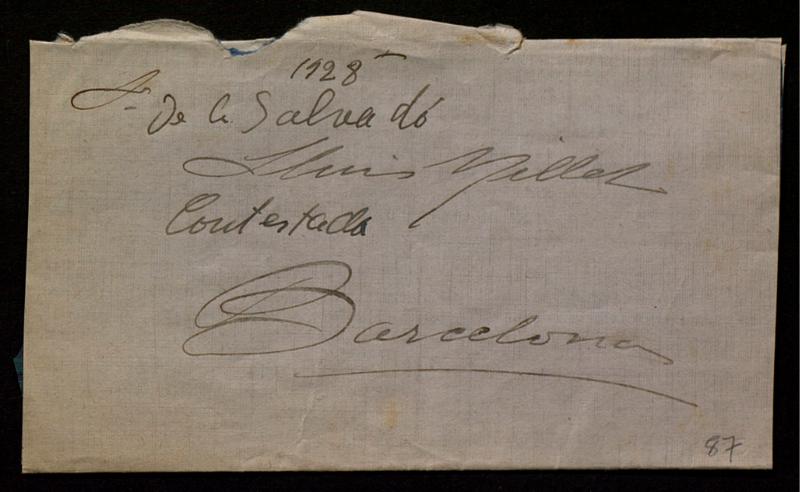 1928
Sr. De C. Salvadó
Lluis Millet
Contestada
Barcelona
87